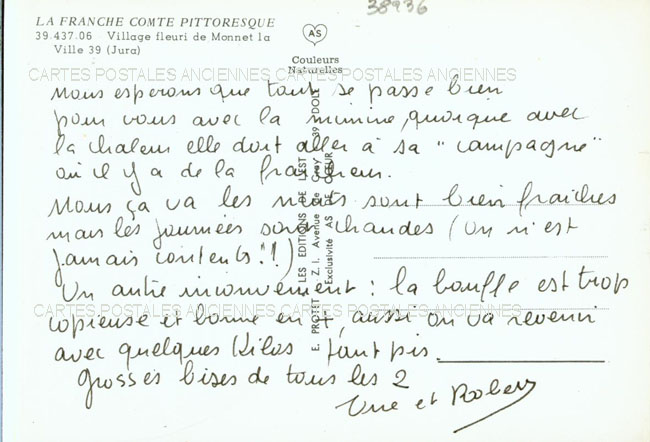 38936
LA FRANCHE COMTE PITTORESQUE
39.437.06 - Village fleuri de Monnet la
Ville 39 (Jura)
AS
Couleurs
Naturelles
CARTES POSTALES ANCIENNES CARTES POSTALES ANCIENNES
Nous esperons que tout se passe bien
pour vous avec la minine, quoique avec
la chaleur elle doit aller à sa "campagne"
où il y a de la fraicheur.
Nous ça va les nuits sont bien fraiches
mais les journées sont chaudes (on n'est
jamais contents !!)
Un autre inconvenient : la bouffe est trop
copieuse et bonne en +, aussi on va revenir
avec quelques Kilos tant pis.
Grosses bises de tous les 2
et Robert
LES EDITIONS DE L'EST
E. PROTET Z.I. Avenue de Gray 39 DOLE
Exclusivité AS DE CŒUR
CARTES POSTALES ANCIENNES CARTES POSTALES ANCIENNES